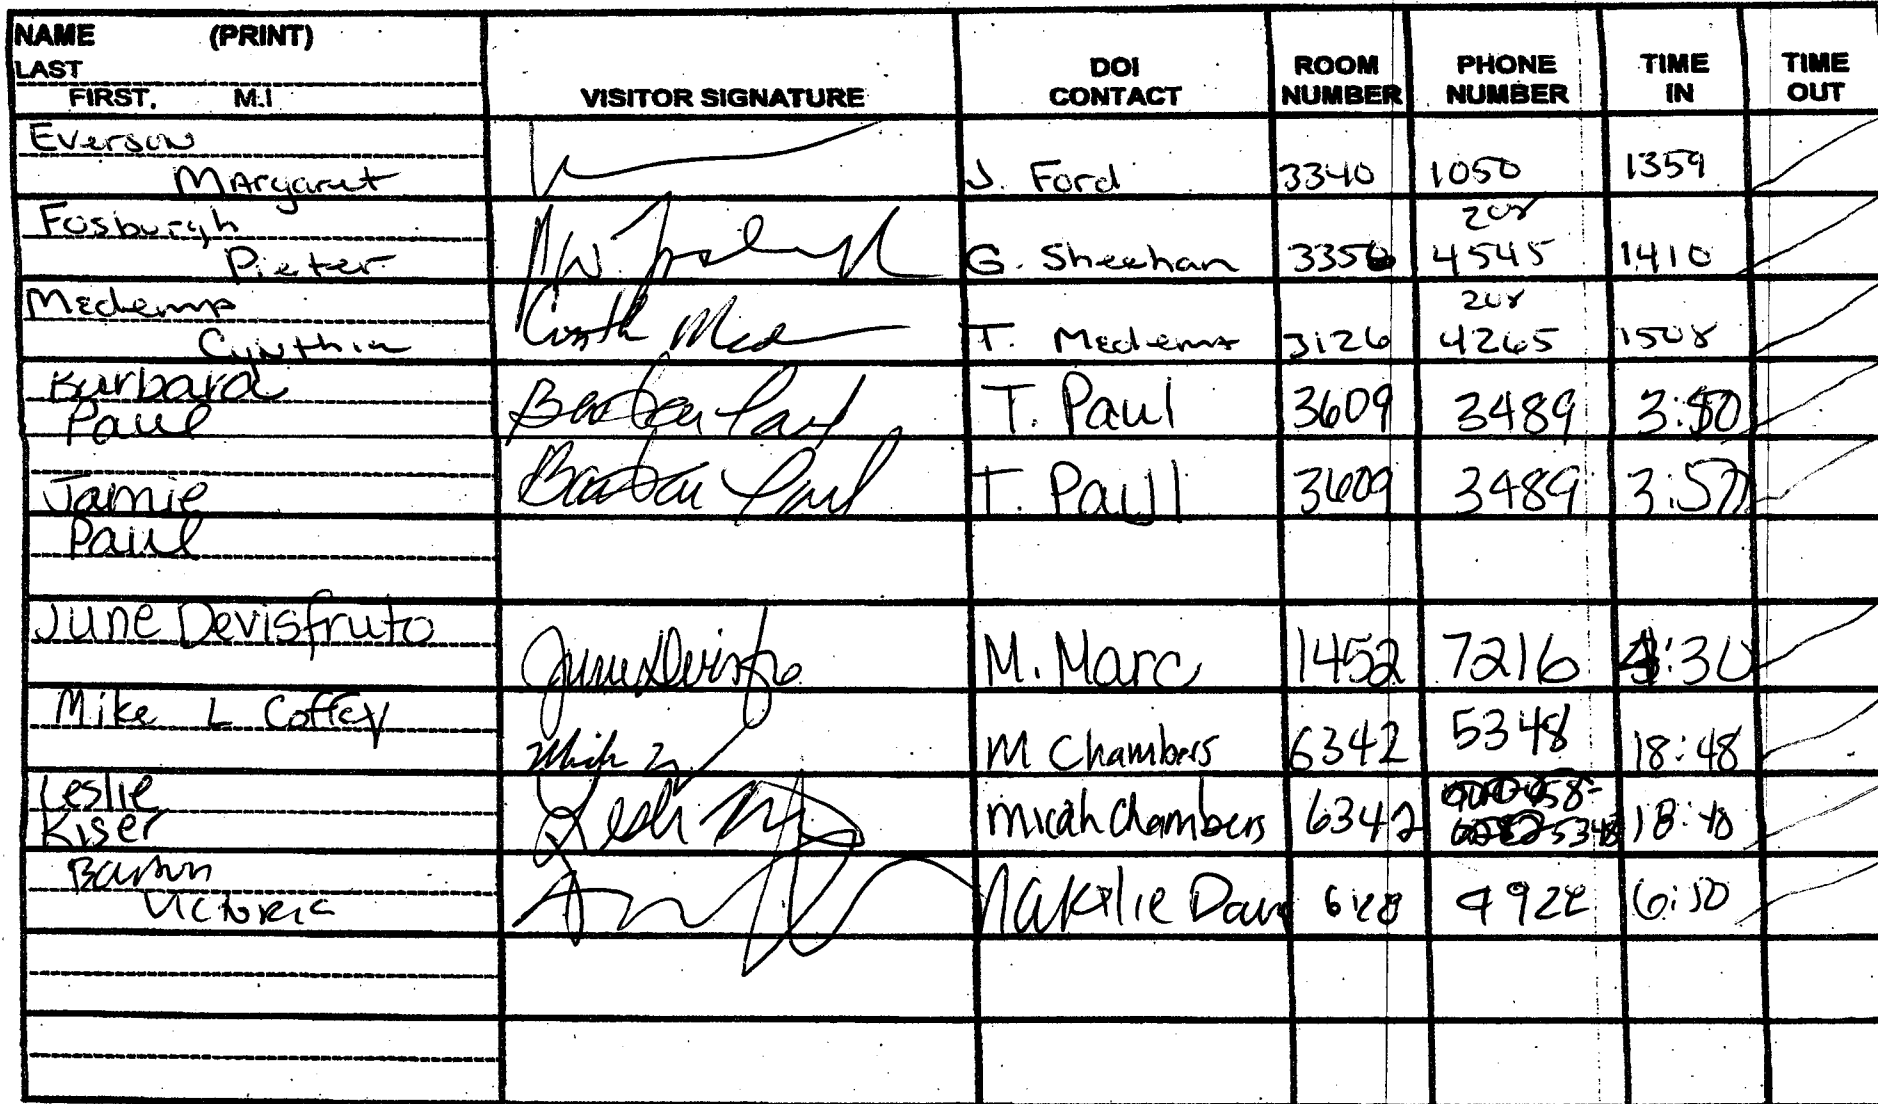 NAME (PRINT)
LAST
FIRST, M.I
VISITOR SIGNATURE
DOI CONTACT
ROOM NUMBER
PHONE NUMBER
TIME IN
TIME OUT
Everson
Margaret J. Ford 3340 1050 1359
Fosburgh 208
Pieter G. Sheehan 3350 4545 1410
Medema 208
Cynthia T. Medema 3126 4265 1508
Barbara
Paul Barbara Paul T. Paul 3609 3489
Jamie Barbara Paul T. Paul 3609 3489 3:57
Paul
June Devisfruto M. Marc 1452 7216 4:30
Mike L Coffey M Chambers 6342 5348 18:48
Leslie
Kiser Micah Chambers 6342 5348
Victoria Natalie 4922